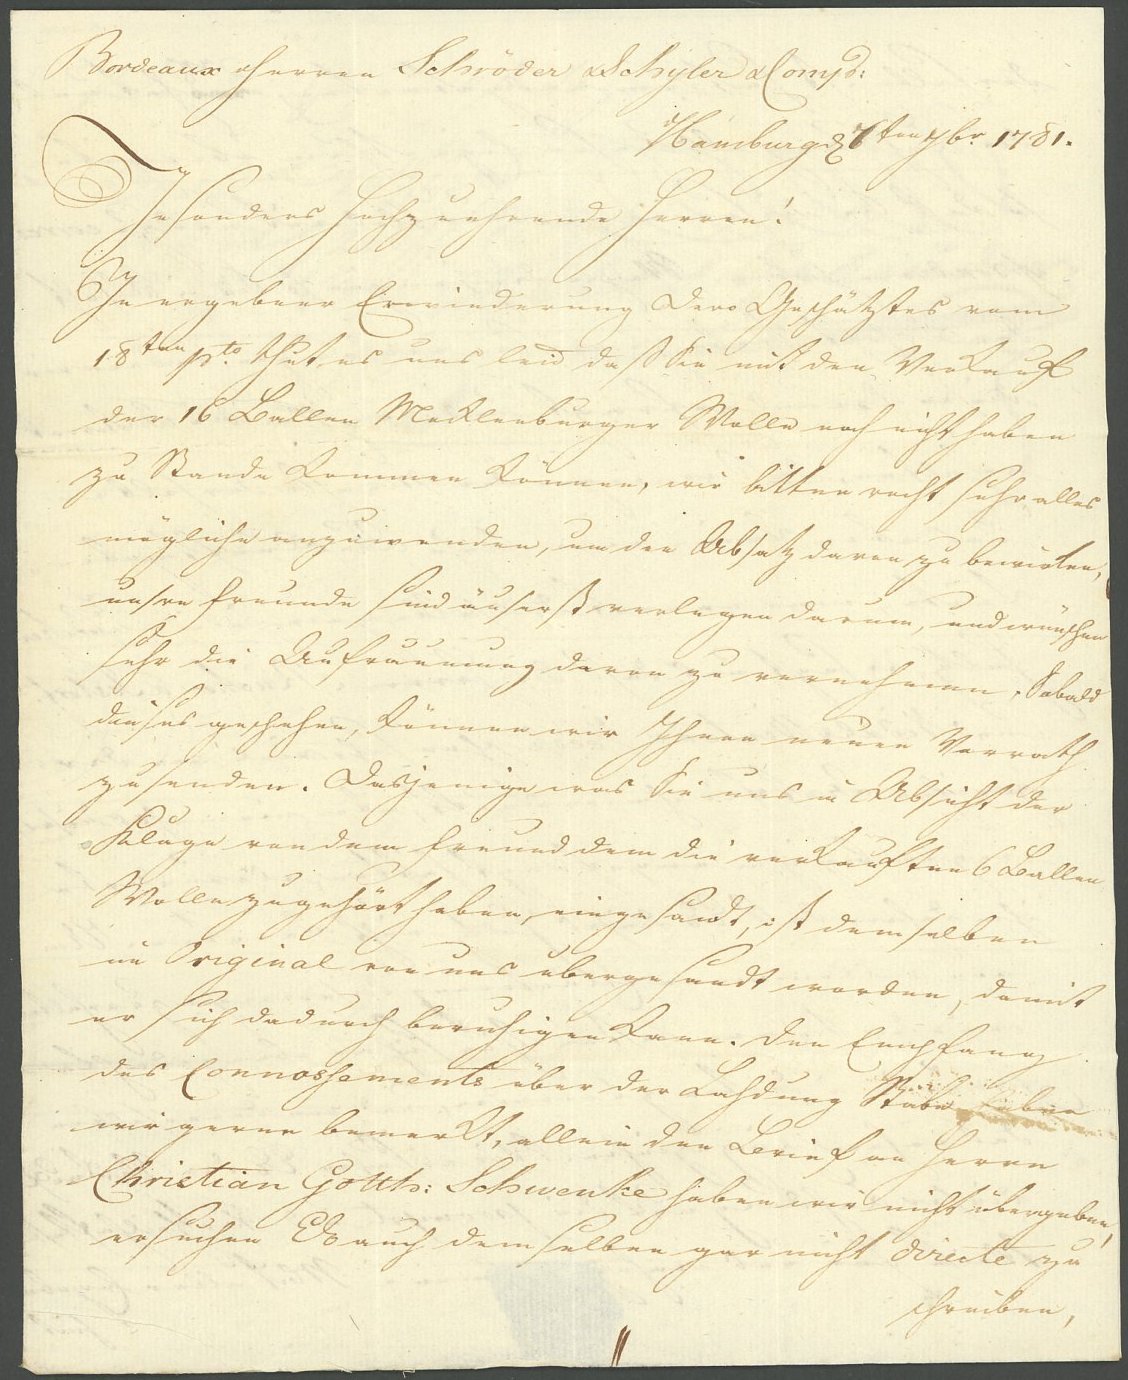 Bordeaux Herren Schröder & Schyler & Comp:
Hamburg d 7ten 7br 1781.
Insonders Hochzuehrende Herren!
In ergebner Erwiederung Dero Geschätztes vom
18ten pto thut es uns leid daß Sie mit den Verkauf
der 16 Ballen Mecklenburger Wolle noch nicht haben
zu Stande kommen können, wir bitten recht sehr alles
mögliche anzuwenden, um den Absatz davon zu bewirken,
unsre Freunde sind äuserst verlegen darum, und wünschen
sehr die Aufräumung davon zu vernehmen, Sobald
dieses geschehen, können wir Ihnen neuen Vorrath
zusenden. Dasjenige was Sie uns in Absicht der
Klage von dem Freund dem die verkauften 6 Ballen
Wolle zugehört haben, eingesandt, ist demselben
in Original von uns übergesandt worden, damit
er sich dadurch beruhigen kann. Den Empfang
des Connossements über der Lahdung Stäbe haben
wir gerne bemerkt, allein den Brief an Herrn
Christian Gotth: Schwenke haben wir nicht übergeben,
ersuchen Ew auch demselben gar nicht directe zu
schreiben,